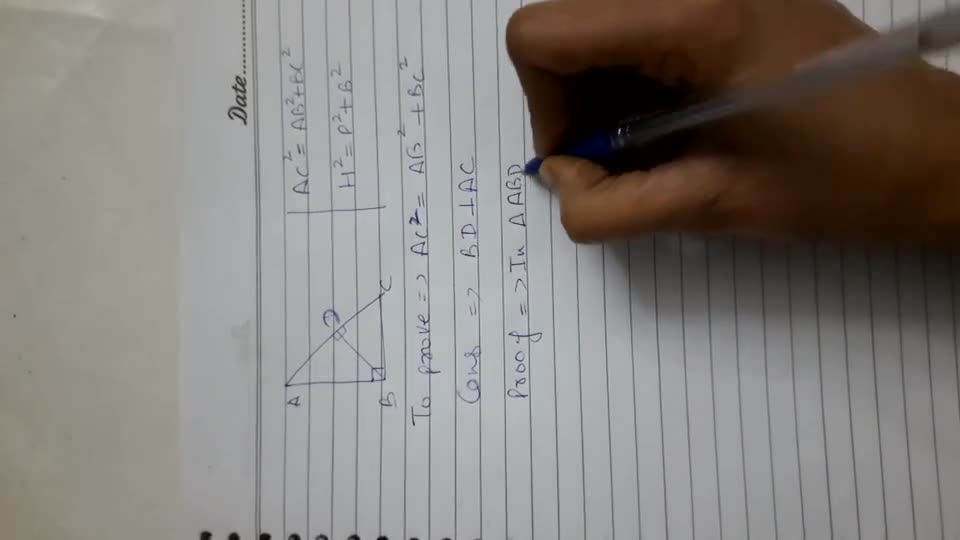 Date..........
AC² = AB²+BC²
H² = P²+B²
A
D
B
C
To prove => AC² = AB² + BC²
Cons => BD⊥AC
Proof => In ΔABD